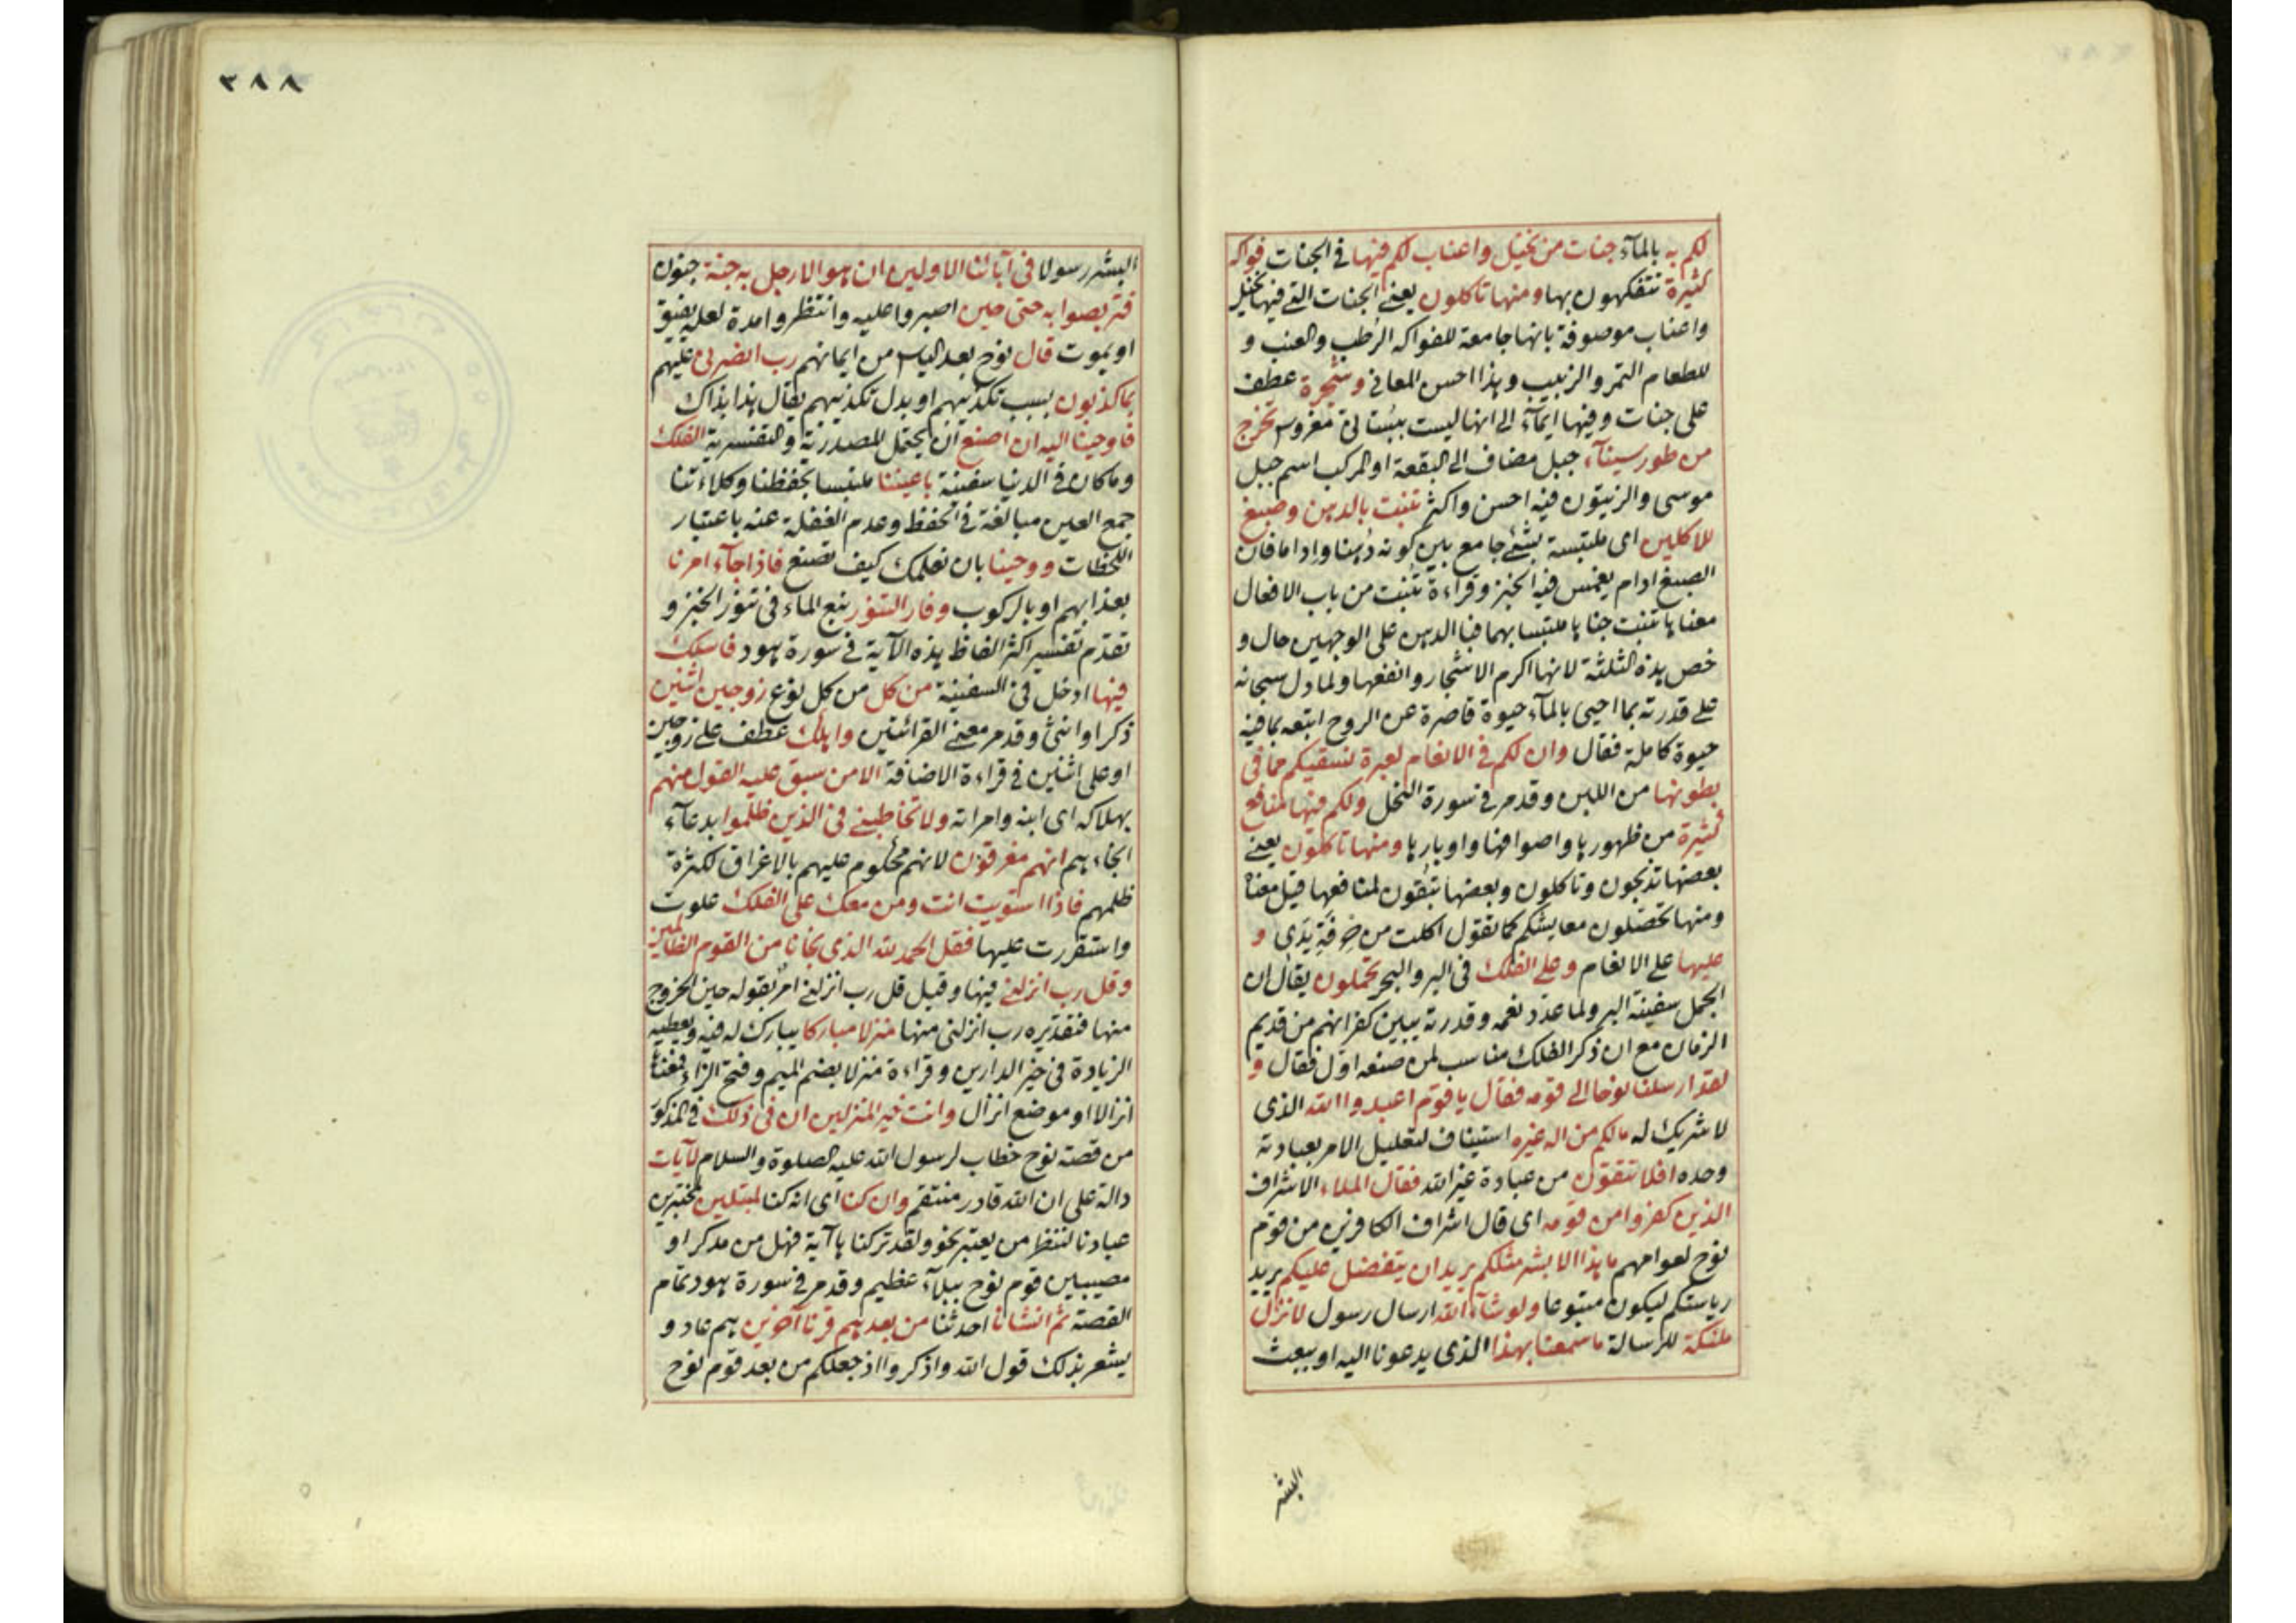 لكم به بالمآء جنات من نخيل واعناب لكم فيها فى الجنات فواكه
كثيرة تتفكهون بها ومنها تاكلون يعنى الجنات التى فيها نخيل
واعناب موصوفة بانها جامعة للفواكه الرطب والعنب و
للطعام التمر والزبيب وهذا احسن المعانى وشجرة عطف
على جنات وفيها ايمآء الى انها ليست ببستانى مغروس تخرج
من طور سينآء جبل مضاف الى البقعة او المركب اسم جبل
موسى والزيتون فيه احسن واكثر تنبت بالدهن وصبغ
للاكلين اى ملتبسة بشئ جامع بين كونه دهنا واداما فان
الصبغ ادام يغمس فيه الخبز وقراءة تنبت من باب الافعال
معناها تنبت جناها ملتبسا بهما فبالدهن على الوجهين حال و
خص هذه الثلثة لانها اكرم الاشجار وانفعها ولما دل سبحانه
على قدرته بما احيى بالمآء حيوة قاصرة عن الروح اتبعه بما فيه
حيوة كاملة فقال وان لكم فى الانعام لعبرة نسقيكم مما فى
بطونها من اللبن وقد مر فى سورة النحل ولكم فيها منافع
كثيرة من ظهورها واصوافها واوبارها ومنها تاكلون يعنى
بعضها تذبحون وتاكلون وبعضها تبقون لمنافعها قيل معناه
ومنها تحصلون معايشكم كما تقول اكلت من حرفة يدى و
عليها على الانعام وعلى الفلك فى البر والبحر تحملون يقال ان
الجمل سفينة البر ولما عدد نعمه وقدرته يبين كفرانهم من قديم
الزمان مع ان ذكر الفلك مناسب لمن صنعه اول فقال و
لقد ارسلنا نوحا الى قومه فقال يا قوم اعبدوا الله الذى
لا شريك له مالكم من اله غيره استيناف لتعليل الامر بعبادته
وحده افلا تتقون من عبادة غير الله فقال الملاء الاشراف
الذين كفروا من قومه اى قال اشراف الكافرين من قوم
نوح لعوامهم ما هذا الا بشر مثلكم يريد ان يتفضل عليكم يريد
رياستكم ليكون متبوعا ولو شآء الله ارسال رسول لانزل
ملئكة للرسالة ما سمعنا بهذا الذى يدعونا اليه او ببعث
البشر
٣٨٨
البشر رسولا فى آبائنا الاولين ان هو الا رجل به جنة جنون
فتربصوا به حتى حين اصبروا عليه وانتظروا مدة لعله يفيق
او يموت قال نوح بعد الياس من ايمانهم رب انصرنى عليهم
بما كذبون بسبب تكذيبهم او بدل تكذيبهم يقال هذا بذاك
فاوحينا اليه ان اصنع ان يحتمل المصدرية والتفسيرية الفلك
وما كان فى الدنيا سفينة باعيننا ملتبسا بحفظنا وكلاءتنا
جمع العين مبالغة فى الحفظ وعدم الغفلة عنه باعتبار
اللحظات ووحينا بان نعلمك كيف تصنع فاذا جآء امرنا
بعذابهم او بالركوب وفار التنور ينبع الماء فى تنور الخبز و
تقدم تفسير اكثر الفاظ هذه الآية فى سورة هود فاسلك
فيها ادخل فى السفينة من كل من كل نوع زوجين اثنين
ذكرا وانثى وقد مر معنى القرائتين واهلك عطف على زوجين
او على اثنين فى قراءة الاضافة الا من سبق عليه القول منهم
بهلاكه اى ابنه وامراته ولا تخاطبنى فى الذين ظلموا بدعآء
انجاءهم انهم مغرقون لانهم محكوم عليهم بالاغراق لكثرة
ظلمهم فاذا استويت انت ومن معك على الفلك علوت
واستقررت عليها فقل الحمد لله الذى نجانا من القوم الظالمين
وقل رب انزلنى فيها وقيل قل رب انزلنى امر بقوله حين الخروج
منها فتقديره رب انزلنى منها منزلا مباركا يبارك له فيه ويعطيه
الزيادة فى خير الدارين وقراءة منزلا بضم الميم وفتح الزاء فمعناه
انزالا او موضع انزال وانت خير المنزلين ان فى ذلك فى المذكور
من قصة نوح خطاب لرسول الله عليه الصلوة والسلام لآيات
دالة على ان الله قادر منتقم وان كنا اى انه كنا لمبتلين مختبرين
عبادنا لننظر من يعتبر نحو ولقد تركناها آية فهل من مدكر او
مصيبين قوم نوح ببلآء عظيم وقد مر فى سورة هود تمام
القصة ثم انشانا احدثنا من بعدهم قرنا آخرين هم عاد و
يشعر بذلك قول الله واذكروا اذ جعلكم من بعد قوم نوح